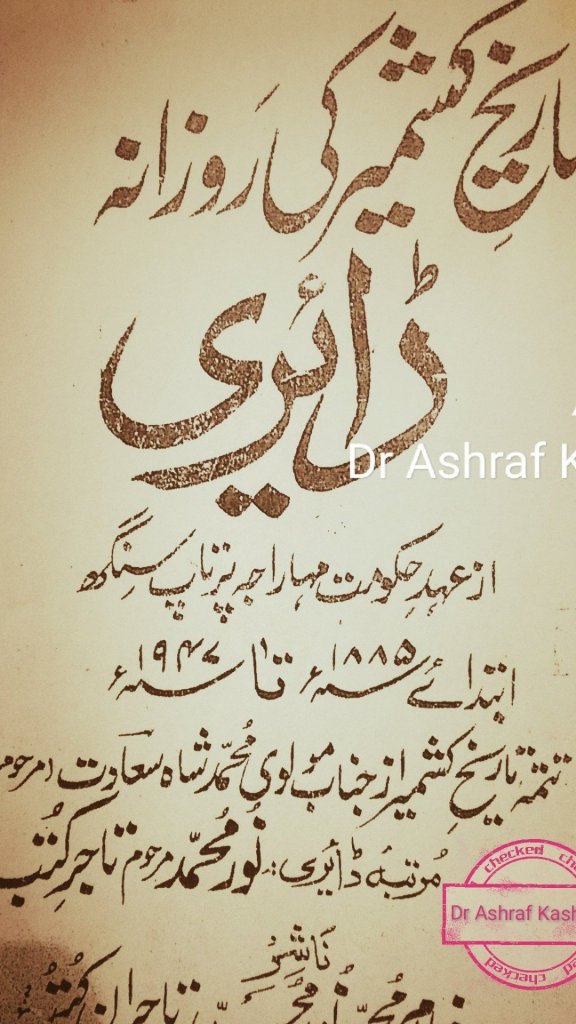 تاریخ کشمیر کی روزانہ
ڈائری
Dr Ashraf K
از عہدِ حکومت مہاراجہ پرتاپ سنگھ
ابتدائے ۱۸۸۵ء تا ۱۹۴۷ء
تتمّہ تاریخِ کشمیر از جناب مولوی محمّد شاہ سعادت (مرحوم
مُرتبۂ ڈائری :۔ نُور محُمّد مرحوم تاجرِ کتُب
checked
Dr Ashraf Kash
checked
نَاشِر
غلام محمّد نُور محمّد تاجران کتُب